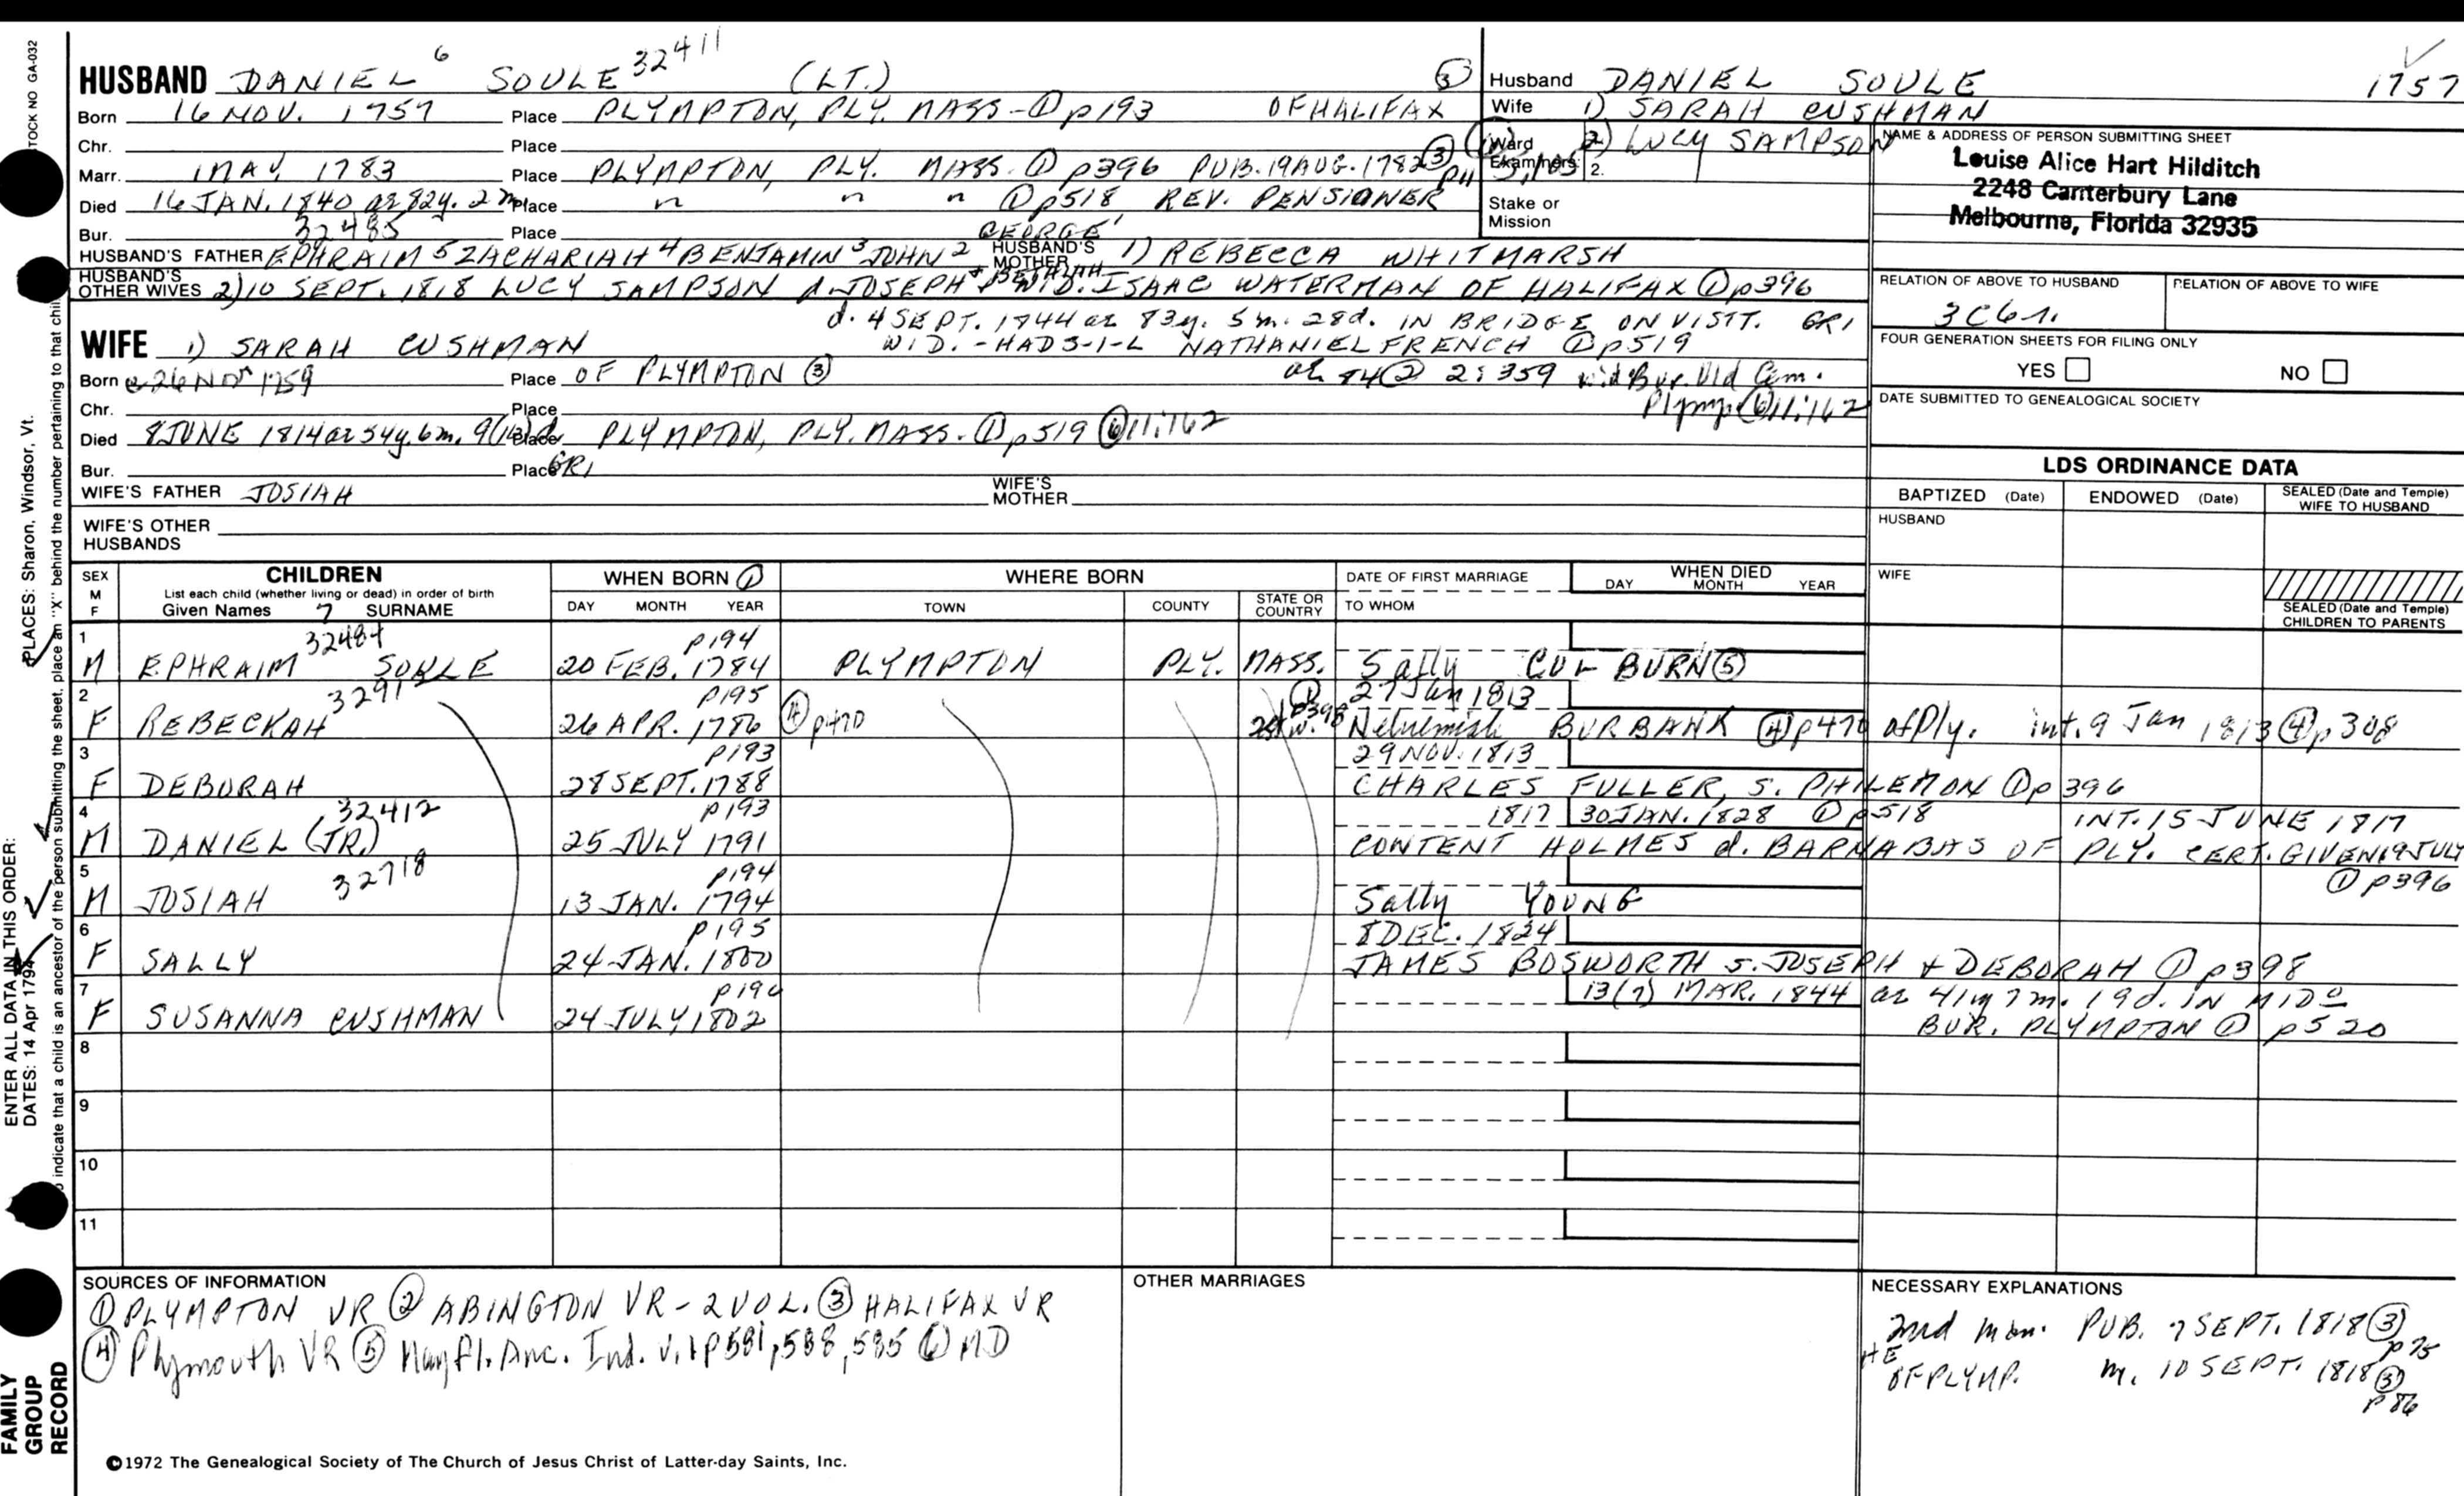 STOCK NO GA-032
HUSBAND DANIEL 6 SOULE 32411 (LT.) 3
Born 16 NOV. 1757 Place PLYMPTON, PLY. MASS - ① p193 OF HALIFAX
Chr. Place
Marr. 1 MAY, 1783 Place PLYMPTON, PLY. MASS. ① p396 PUB. 19 AUG. 1782 ③
Died 16 JAN. 1840 ae 82y. 2m Place " " " ① p518 REV. PENSIONER
Bur. 32485 Place
HUSBAND'S FATHER EPHRAIM 5 ZACHARIAH 4 BENJAMIN 3 JOHN 2 GEORGE 1 HUSBAND'S MOTHER 1) REBECCA WHITMARSH
HUSBAND'S OTHER WIVES 2) 10 SEPT. 1818 LUCY SAMPSON d. JOSEPH + BETHIAH WID. ISAAC WATERMAN OF HALIFAX ① p396
d. 4 SEPT. 1844 ae 83y. 5m. 28d. IN BRIDGE ON VISIT. GR1
WIFE 1) SARAH CUSHMAN WID. - HAD S-I-L NATHANIEL FRENCH ① p519
Born 26 NOV 1759 Place OF PLYMPTON ③ ae 84 ② 2:359 wid Bur. Old Cem.
Plymp ⑥ 11:162
Chr. Place
Died 8 JUNE 1814 ae 54y. 6m. 9(13)d Place PLYMPTON, PLY. MASS. ① p519 ⑥ 11:162
Bur. Place GR1
WIFE'S FATHER JOSIAH WIFE'S MOTHER
WIFE'S OTHER HUSBANDS
Husband DANIEL SOULE 1757
Wife 1) SARAH CUSHMAN
Ward 2) LUCY SAMPSON
Examiners: 2.
Stake or Mission
NAME & ADDRESS OF PERSON SUBMITTING SHEET
Louise Alice Hart Hilditch
2248 Canterbury Lane
Melbourne, Florida 32935
RELATION OF ABOVE TO HUSBAND RELATION OF ABOVE TO WIFE
3C6r.
FOUR GENERATION SHEETS FOR FILING ONLY
YES NO
DATE SUBMITTED TO GENEALOGICAL SOCIETY
LDS ORDINANCE DATA
BAPTIZED (Date) ENDOWED (Date) SEALED (Date and Temple) WIFE TO HUSBAND
HUSBAND
WIFE
SEALED (Date and Temple) CHILDREN TO PARENTS
SEX M F CHILDREN List each child (whether living or dead) in order of birth Given Names 7 SURNAME
WHEN BORN ① DAY MONTH YEAR
WHERE BORN TOWN COUNTY STATE OR COUNTRY
DATE OF FIRST MARRIAGE TO WHOM
WHEN DIED DAY MONTH YEAR
1 32484 p194
M EPHRAIM SOULE 20 FEB. 1784 PLYMPTON PLY. MASS. Sally COLBURN ⑤
2 3291 p195 27 Jan 1813
F REBECKAH 26 APR. 1786 ④ p470 ① p398 Nehemiah BURBANK ④ p470 of Ply. int. 9 Jan 1813 ④ p308
3 p193 29 NOV. 1813
F DEBORAH 28 SEPT. 1788 CHARLES FULLER, S. PHILEMON ① p396
4 32412 p193 1817 30 JAN. 1828 ① p518 INT. 15 JUNE 1817
M DANIEL (JR.) 25 JULY 1791 CONTENT HOLMES d. BARNABAS OF PLY. CERT. GIVEN 19 JULY
① p396
5 32718 p194
M JOSIAH 13 JAN. 1794 Sally YOUNG
6 p195 8 DEC. 1824
F SALLY 24 JAN. 1800 JAMES BOSWORTH S. JOSEPH + DEBORAH ① p398
7 13(7) MAR. 1844 ae 41y 7m. 19d. IN MIDo
F SUSANNA CUSHMAN 24 JULY 1802 BUR. PLYMPTON ① p520
8
9
10
11
SOURCES OF INFORMATION
① PLYMPTON VR ② ABINGTON VR - 2 VOL. ③ HALIFAX VR
④ Plymouth VR ⑤ Mayfl. Anc. Ind. v.1 p581, 588, 585 ⑥ MD
OTHER MARRIAGES
NECESSARY EXPLANATIONS
2nd marr. PUB. 7 SEPT. 1818 ③ p75
HE OF PLYMP. m. 10 SEPT. 1818 ③ p86
©1972 The Genealogical Society of The Church of Jesus Christ of Latter-day Saints, Inc.
ENTER ALL DATA IN THIS ORDER:
DATES: 14 Apr 1794 PLACES: Sharon, Windsor, Vt.
indicate that a child is an ancestor of the person submitting the sheet, place an "X" behind the number pertaining to that chil
FAMILY
GROUP
RECORD